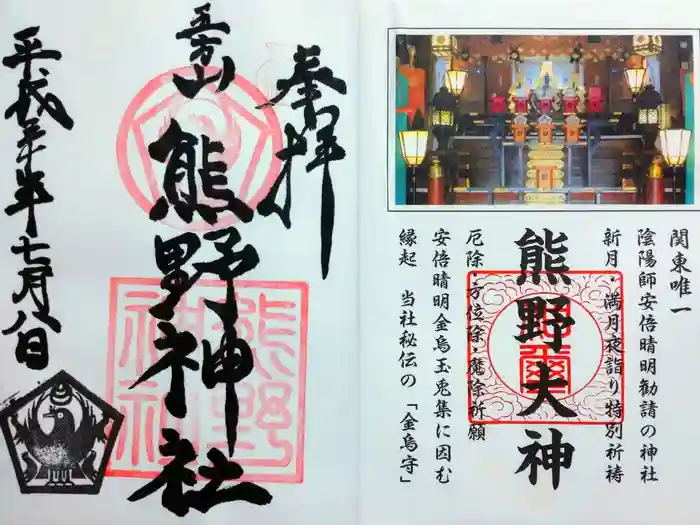 関東唯一
陰陽師安倍晴明勧請の神社
新月・満月夜詣り特別祈祷
熊野大神
厄除・方位除・魔除祈願
安倍晴明金烏玉兎集に因む
縁起 当社秘伝の「金烏守」
奉拝
五方山
熊野神社
平成三十年七月八日
熊野
神社